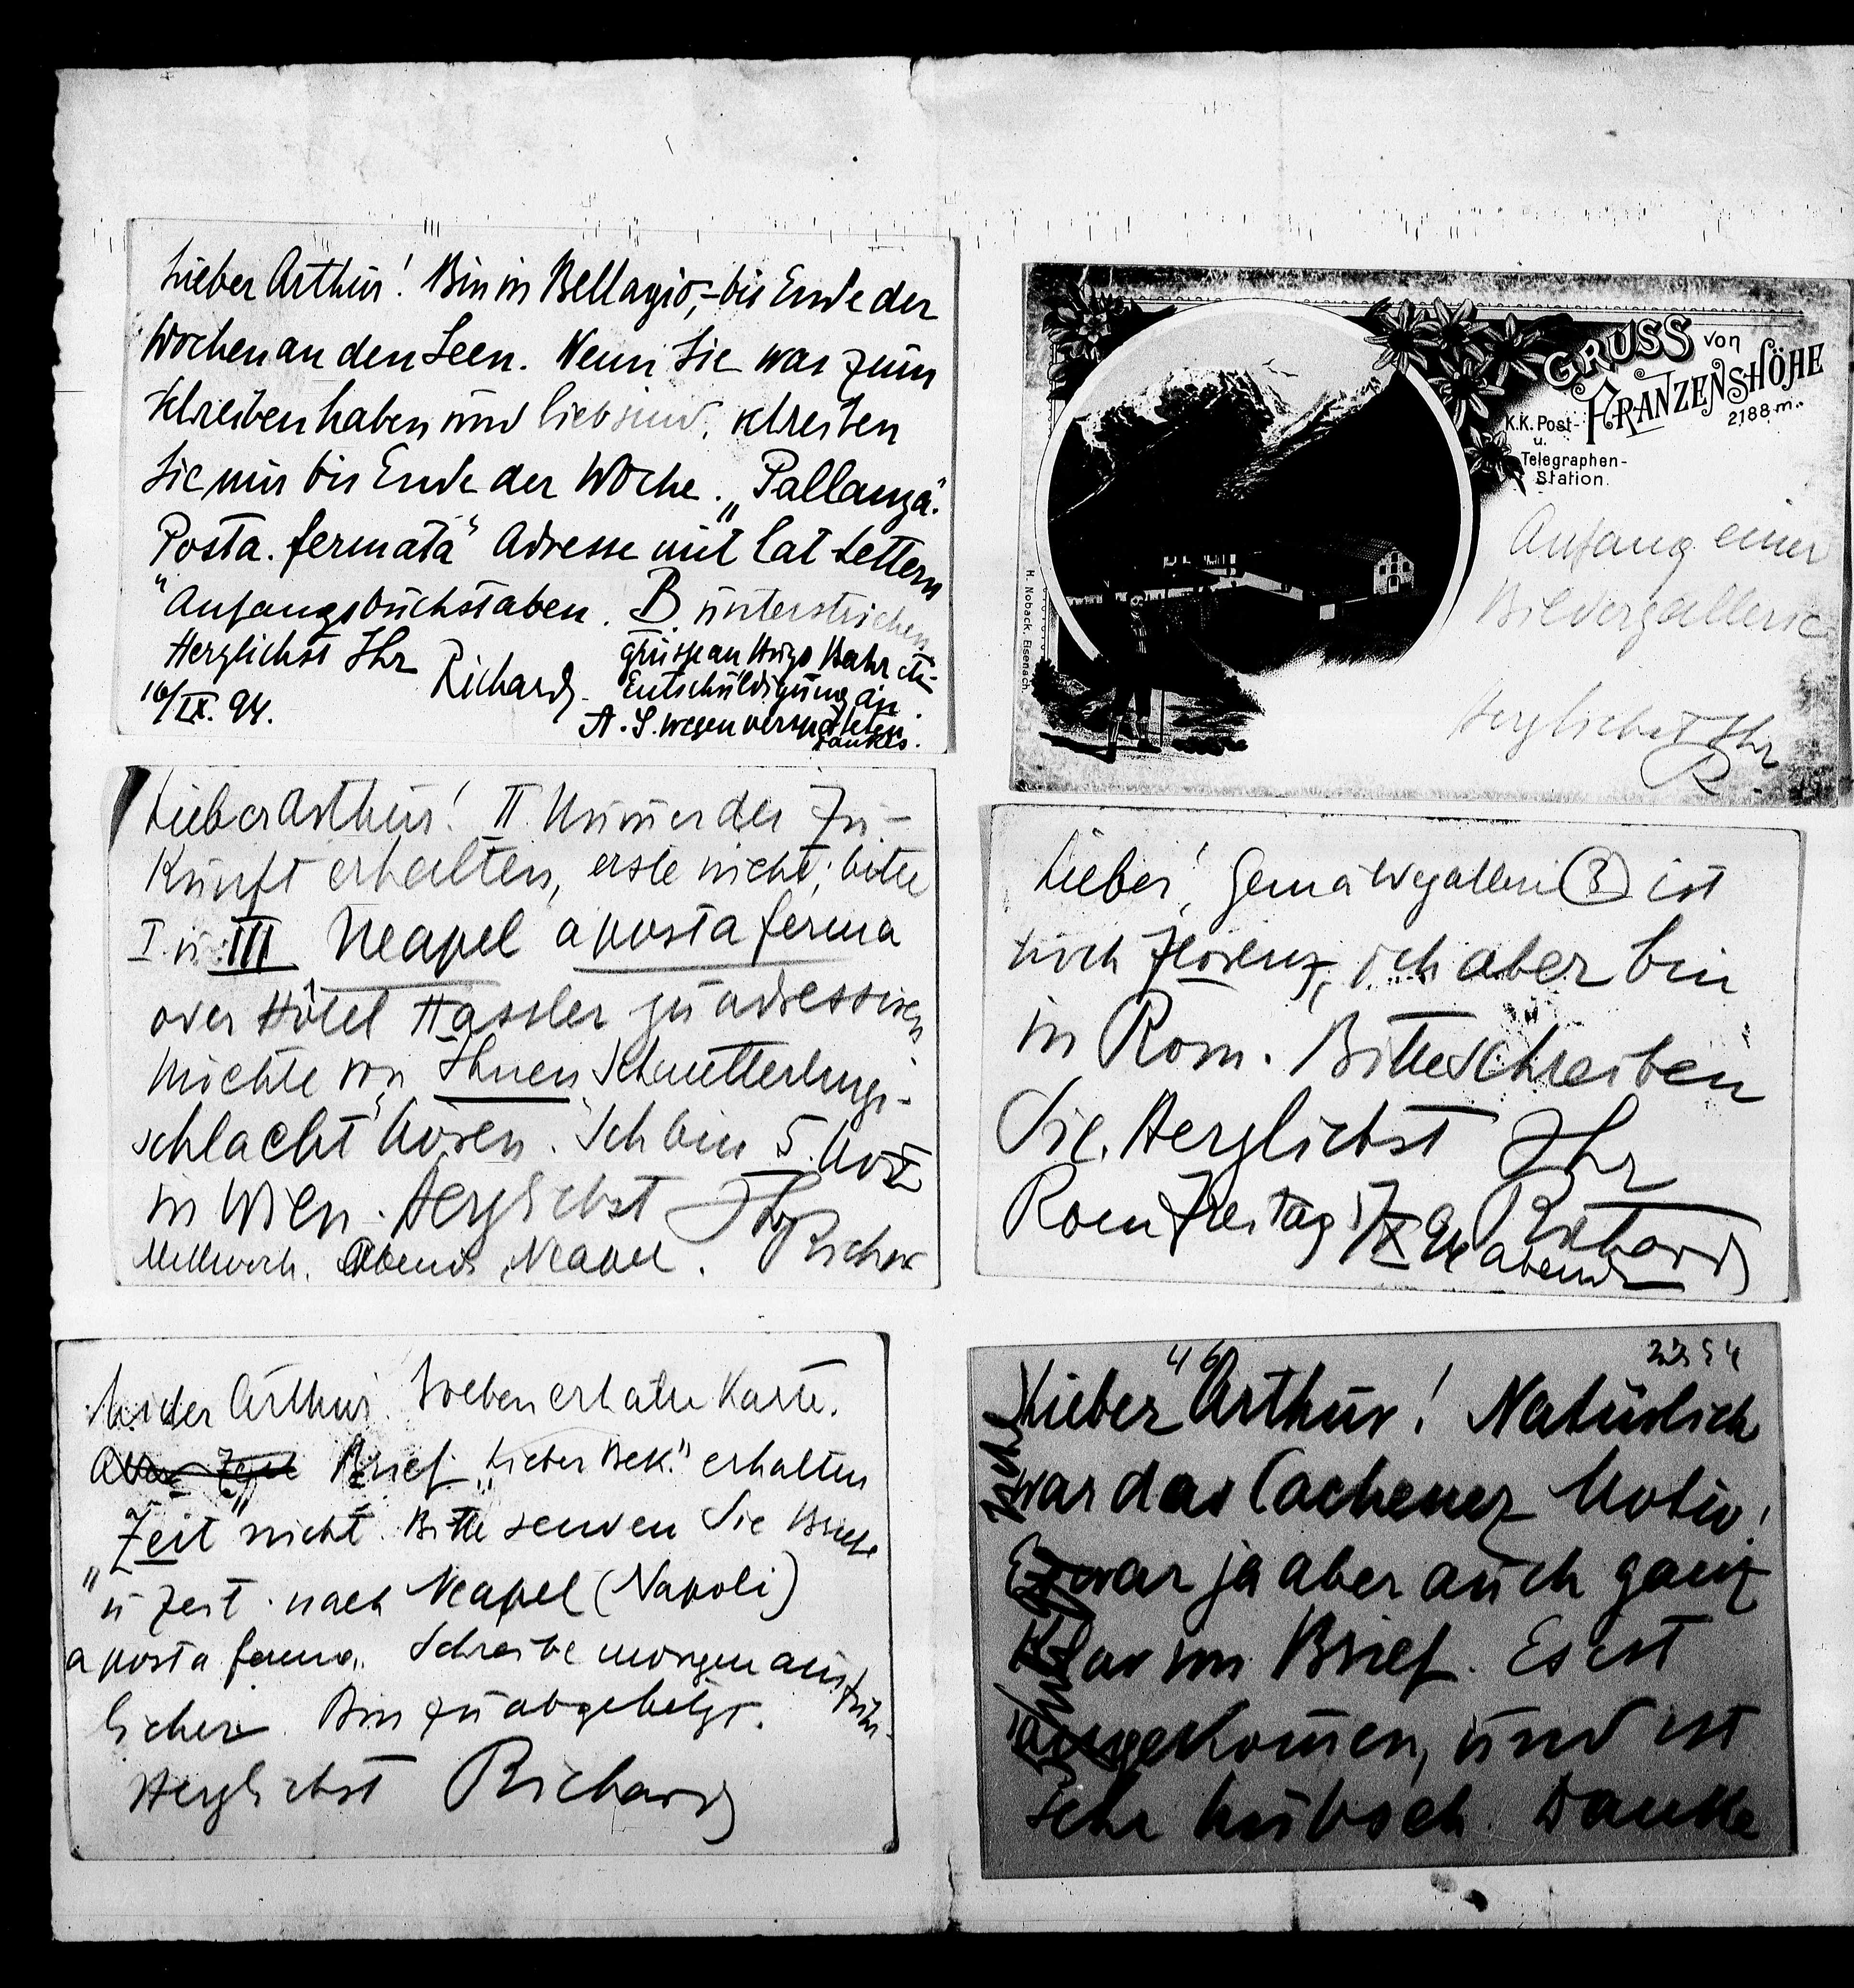 Lieber Arthur! Bin in Bellagio,– bis Ende der
Wochen an den Seen. Wenn Sie was zum
Schreiben haben und lieb sind, schreiben
Sie mir bis Ende der Woche. „Pallanza.
Posta. fermata“ Adresse mit lat Lettern
Anfangsbuchstaben. B unterstrichen
Herzlichst Ihr Richard
Grüsse an Hugo Bahr etc
Entschuldigung an
A. S. wegen verspäteten
Dankes.
16/IX. 94.
GRUSS von
FRANZENSHÖHE
2188 m.
K.K. Post-
u.
Telegraphen-
Station.
H. Noback, Eisenach.
Anfang einer
Bildergallerie
Herzlichst Ihr
R
Lieber Arthur! II. Nummer der Zu-
kunft erhalten, erste nicht; bitte
I. u III Neapel a posta ferma
oder Hôtel Hassler zu adressiren
Möchte von Ihnen Schmetterlings-
schlacht hören. Ich bin 5. Nov
in Wien. Herzlichst Ihr Richard
Mittwoch. Abends Neapel.
Lieber! Gemäldegallerie (3) ist
noch Florenz, ich aber bin
in Rom. Bitte schreiben
Sie. Herzlichst Ihr
Richard
Rom Freitag 94 abends
Lieber Arthur! Soeben erhalte Karte.
Brief „Lieber Bek.“ erhalten
„Zeit“ nicht. Bitte senden Sie Briefe
u Zeit nach Neapel (Napoli)
a posta ferma. Schreibe morgen ausführ-
licher. Bin zu abgehetzt.
Herzlichst Richard
46
Lieber Arthur! Natürlich
war das Cachenez Motiv!
Es war ja aber auch ganz
klar im Brief. Es ist
angekommen, und ist
sehr hübsch. Danke